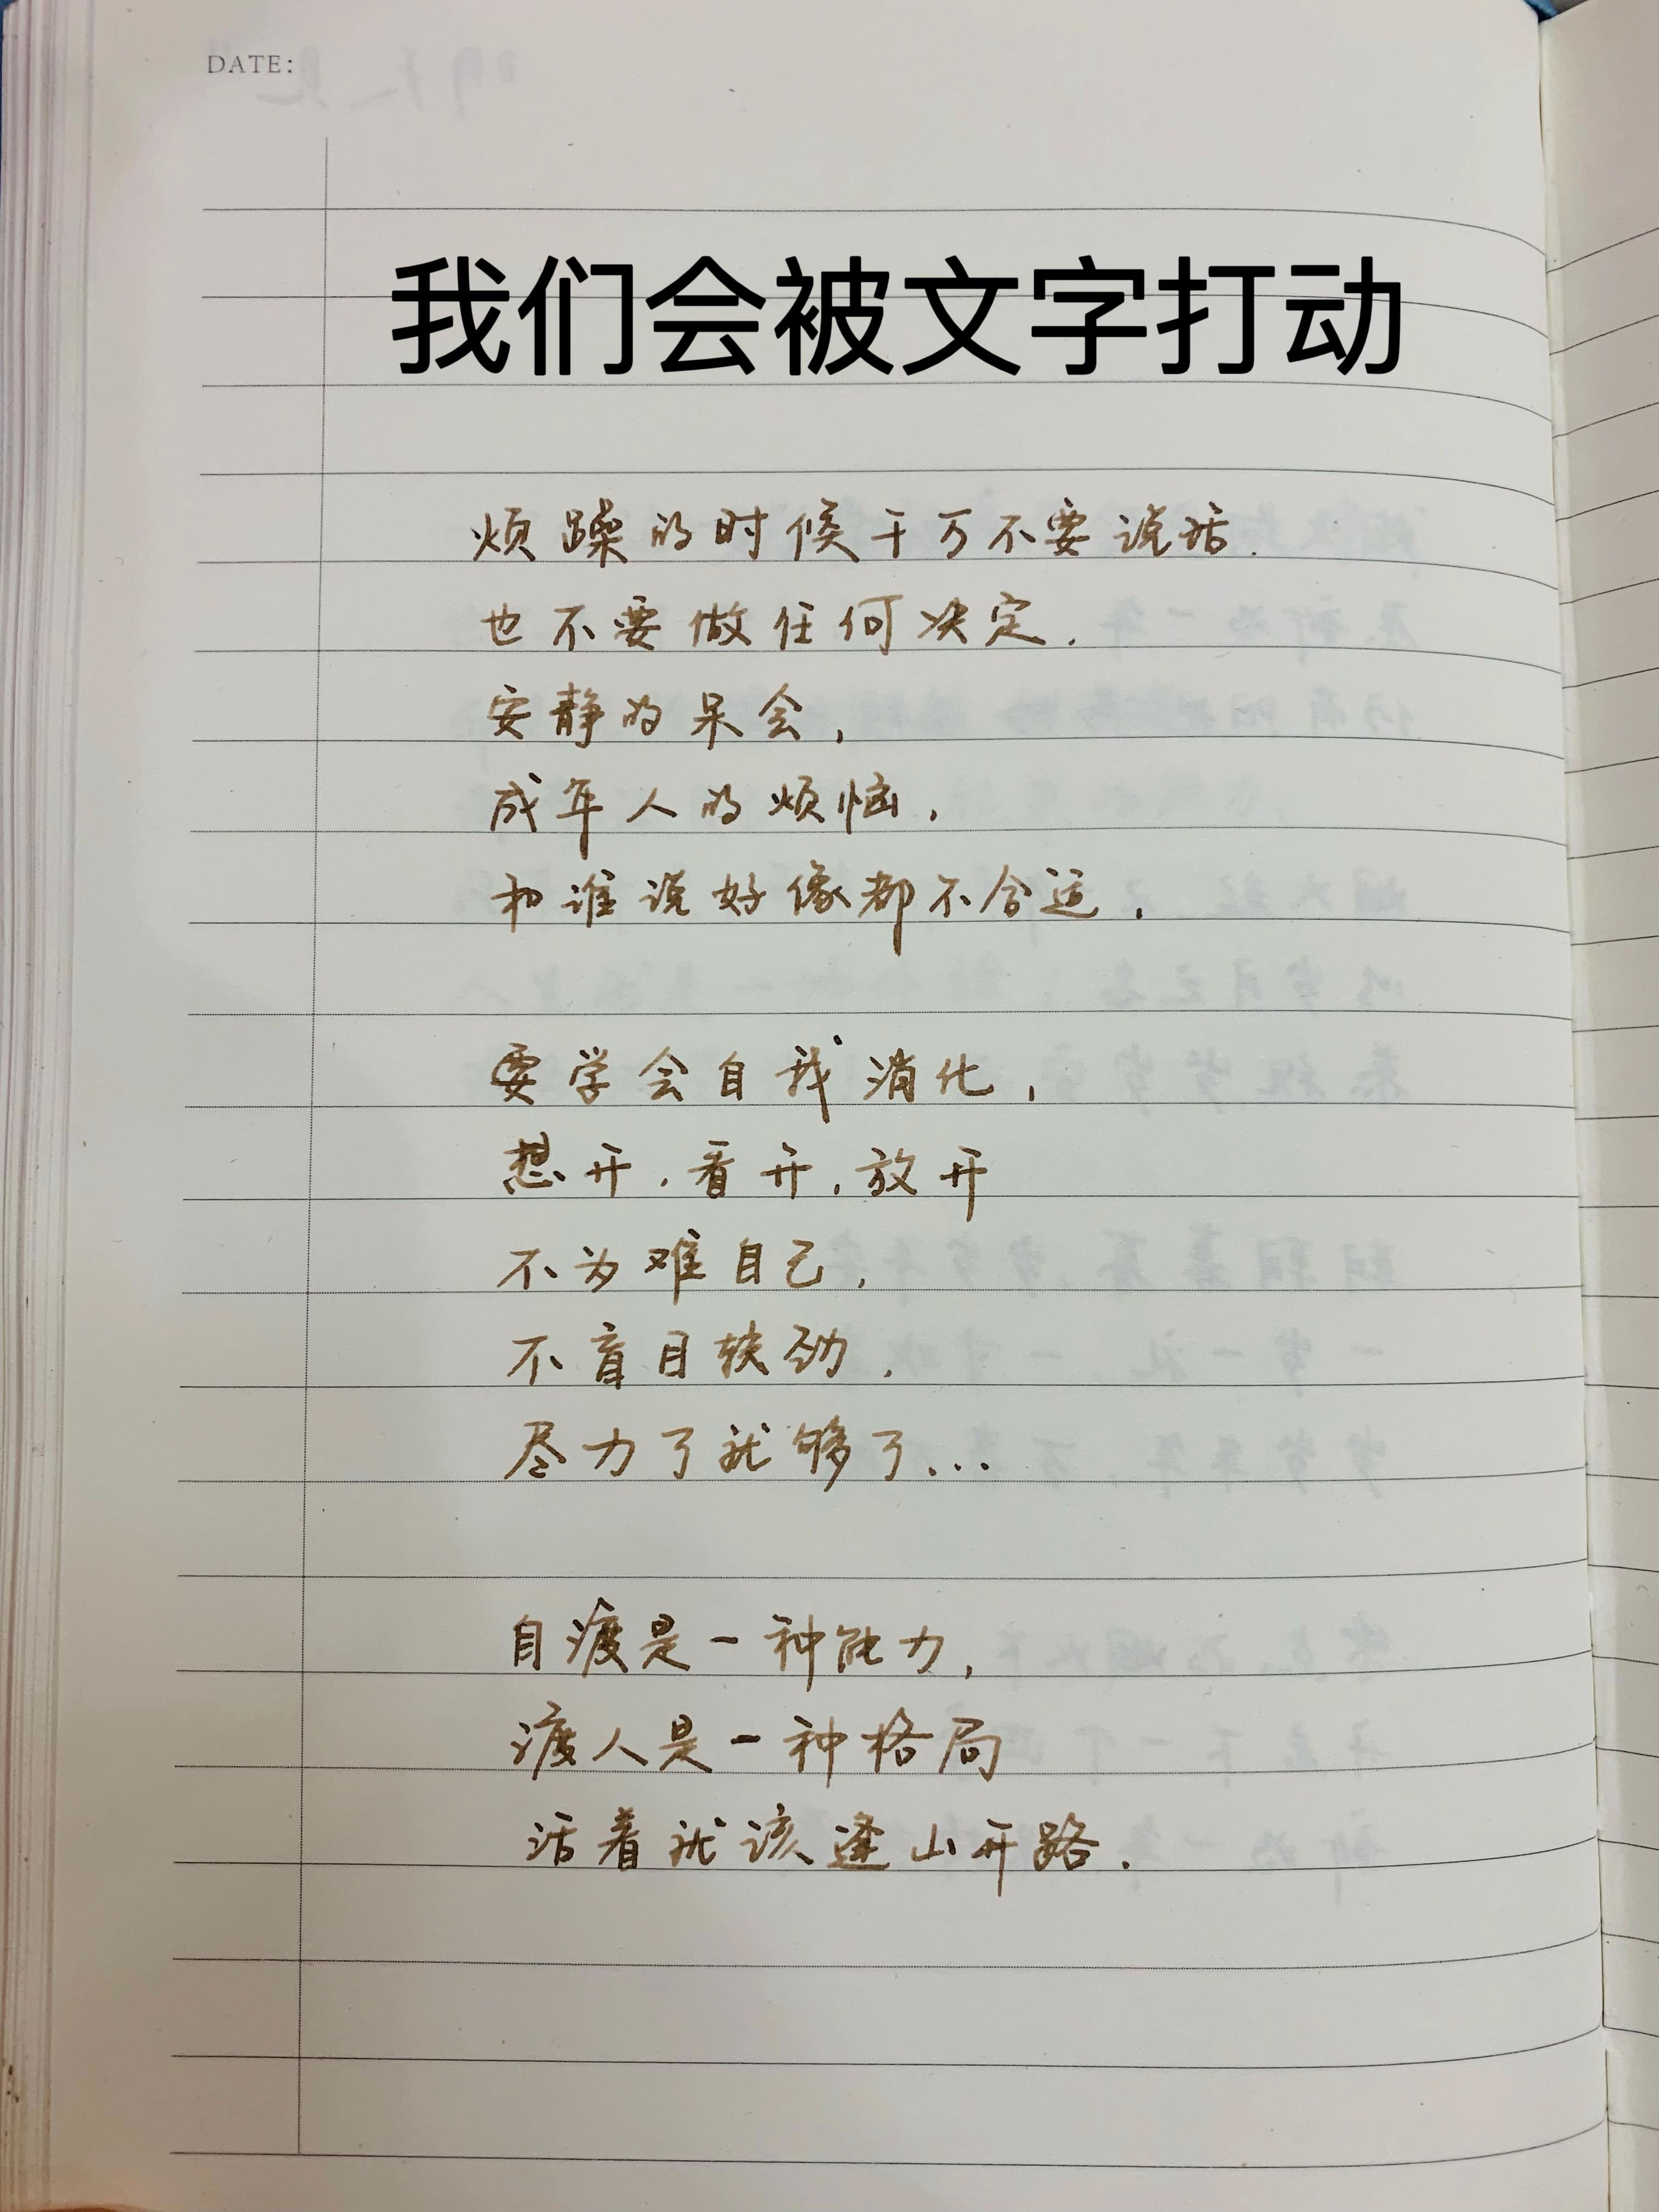 DATE:
我们会被文字打动
烦躁的时候千万不要说话.
也不要做任何决定.
安静的呆会,
成年人的烦恼,
和谁说好像都不合适,
要学会自我消化,
想开,看开,放开
不为难自己,
不盲目较劲,
尽力了就够了...
自渡是一种能力,
渡人是一种格局
活着就该逢山开路.